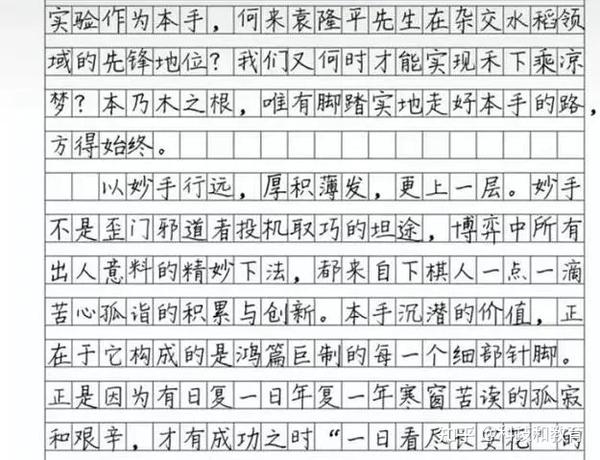 实验作为本手，何来袁隆平先生在杂交水稻领
域的先锋地位？我们又何时才能实现禾下乘凉
梦？本乃木之根，唯有脚踏实地走好本手的路，
方得始终。
以妙手行远，厚积薄发，更上一层。妙手
不是歪门邪道者投机取巧的坦途，博弈中所有
出人意料的精妙下法，都来自下棋人一点一滴
苦心孤诣的积累与创新。本手沉潜的价值，正
在于它构成的是鸿篇巨制的每一个细部针脚。
正是因为有日复一日年复一年寒窗苦读的孤寂
和艰辛，才有成功之时“一日看尽长安花”的
知乎 @科技和教育